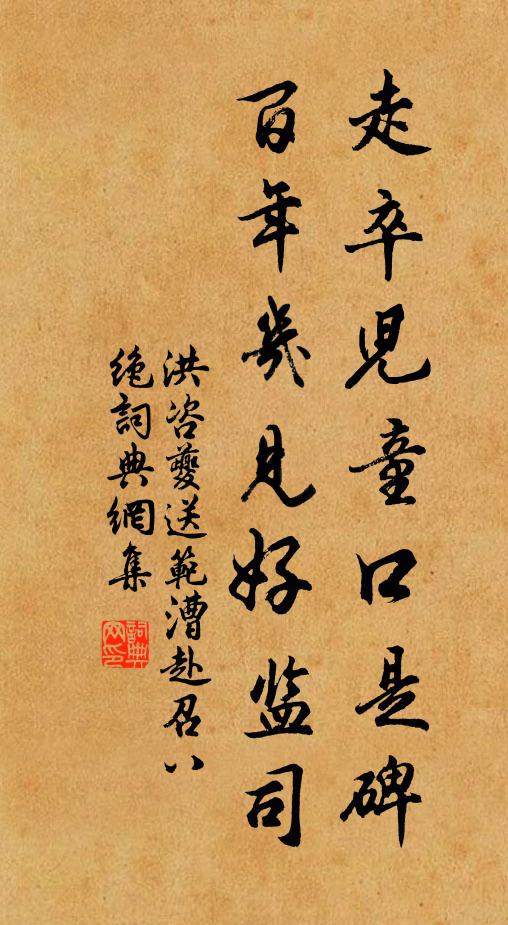 走卒兒童口是碑
百年幾見好监司
洪咨夔送範漕赴召八
绝詞典網集
詞典網印